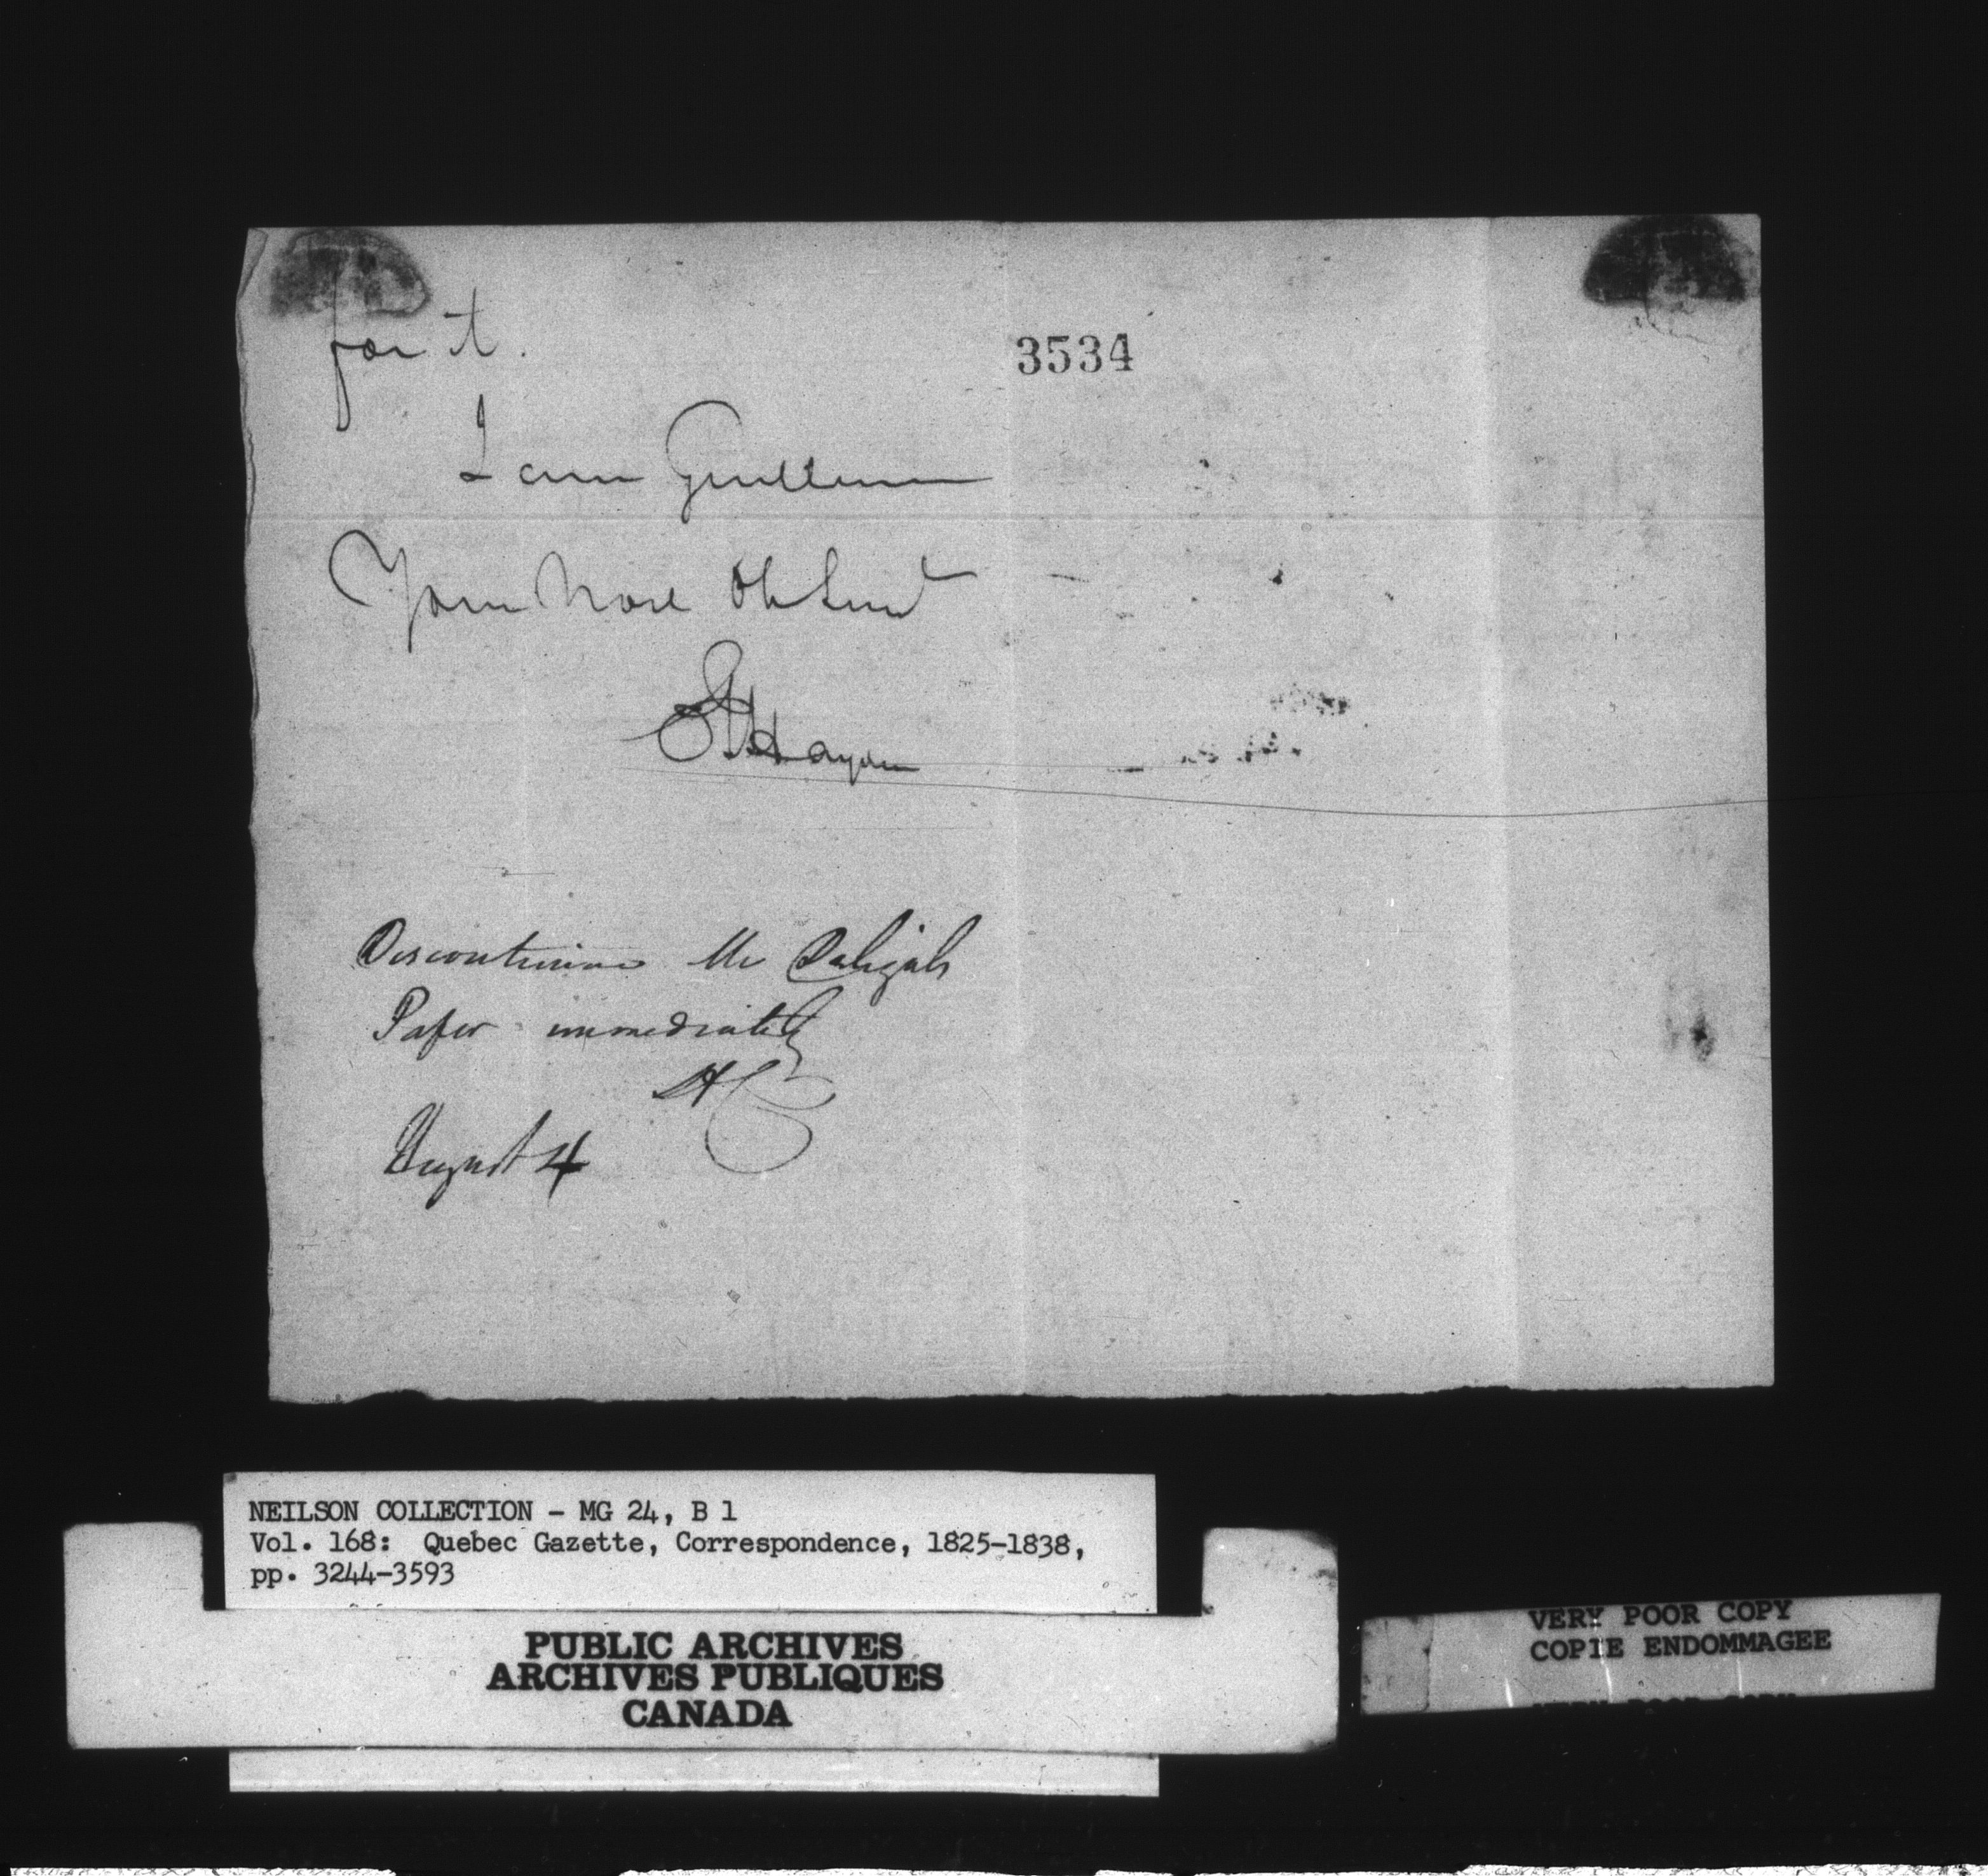 for it.
3534
I am Gentlemen
Your Most Ob Servt
Hayden
Discontinue Mr Daligals
Paper immediately
August 4
NEILSON COLLECTION - MG 24, B 1
Vol. 168: Quebec Gazette, Correspondence, 1825-1838,
pp. 3244-3593
PUBLIC ARCHIVES
ARCHIVES PUBLIQUES
CANADA
VERY POOR COPY
COPIE ENDOMMAGEE